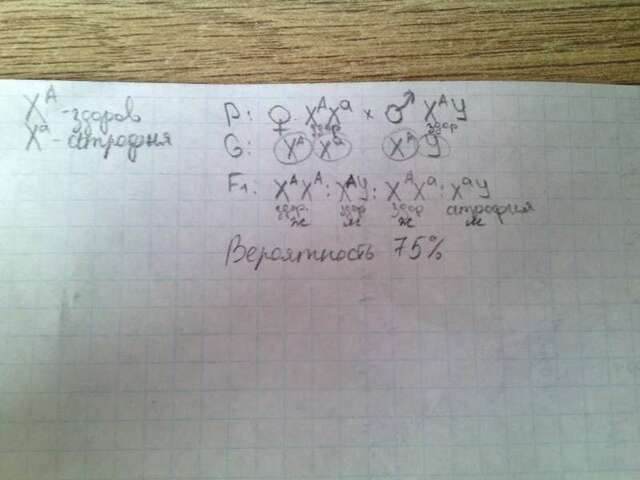 X^A - здоров
X^a - атрофия
P: ♀ X^A X^a × ♂ X^A У
здор здор
G: X^A X^a X^A У
F1: X^A X^A : X^A У : X^A X^a : X^a У
здор. здор здор атрофия
ж м ж м
Вероятность 75%